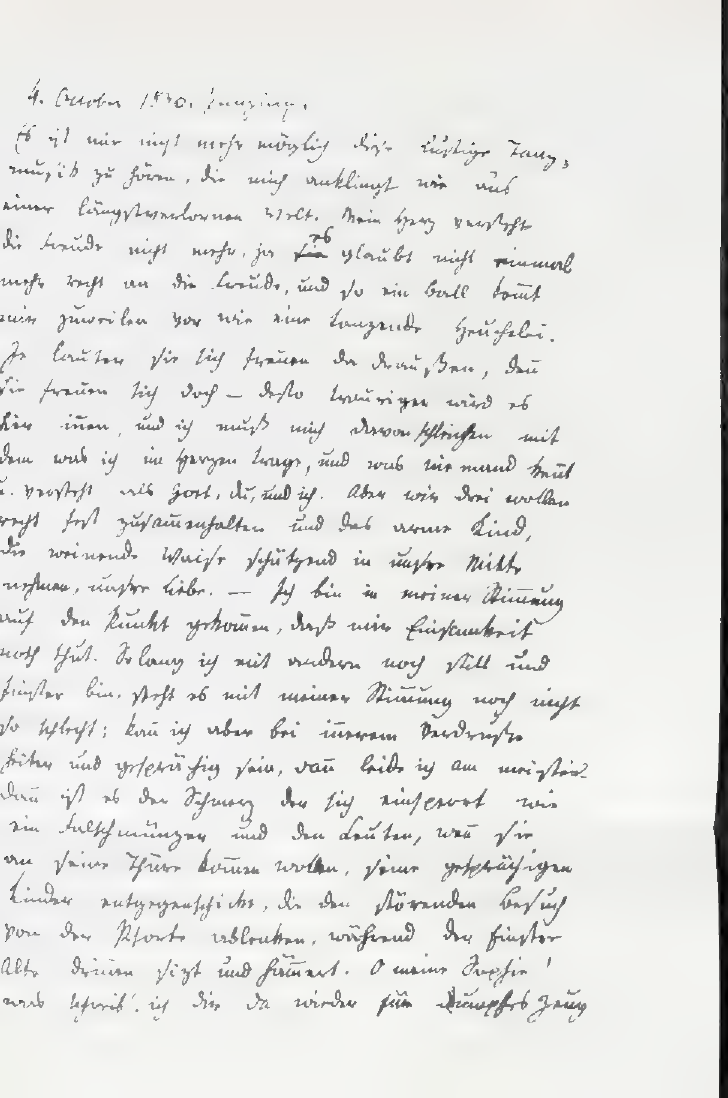 4. October 1840. Penzing.
Es ist mir nicht mehr möglich diese lustige Tanz-
musik zu hören, die mich anklingt wie aus
einer längstverlornen Welt. Mein Herz versteht
die Freude nicht mehr, ja es glaubt nicht einmal
mehr recht an die Freude, und so ein Ball kom̄t
mir zuweilen vor wie eine tanzende Heuchelei.
Je lauter sie sich freuen da draußen, den̄
sie freuen sich doch — desto trauriger wird es
hier in̄en, und ich muß mich davonschleichen mit
dem was ich im Herzen trage, und was niemand ken̄t
u. versteht als Gott, du, und ich. Aber wir drei wollen
recht fest zusam̄enhalten und das arme Kind,
die weinende Waise schützend in unsre Mitte
nehmen, unsre Liebe. — Ich bin in meiner Stim̄ung
auf den Punkt gekom̄en, daß mir Einsamkeit
noth thut. Solang ich mit andern noch still und
finster bin, steht es mit meiner Stim̄ung noch nicht
so schlecht; kan̄ ich aber bei in̄erem Verdrusse
heiter und gesprächig sein, dan̄ leide ich am meisten.
Dan̄ ist es der Schmerz der sich einsperrt wie
ein Falschmünzer und den Leuten, wen̄ sie
an seine Thüre kom̄en wollen, seine gesprächigen
Kinder entgegenschickt, die den störenden Besuch
von der Pforte ablenken, während der finstre
Alte drin̄en sizt und häm̄ert. O meine Sophie!
was schreib' ich dir da wieder für dumpfes Zeug